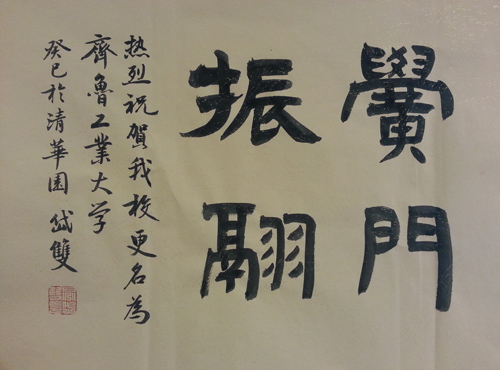 黌門
振翮
热烈祝賀我校更名為
齊魯工業大学
癸巳於清華園 雙